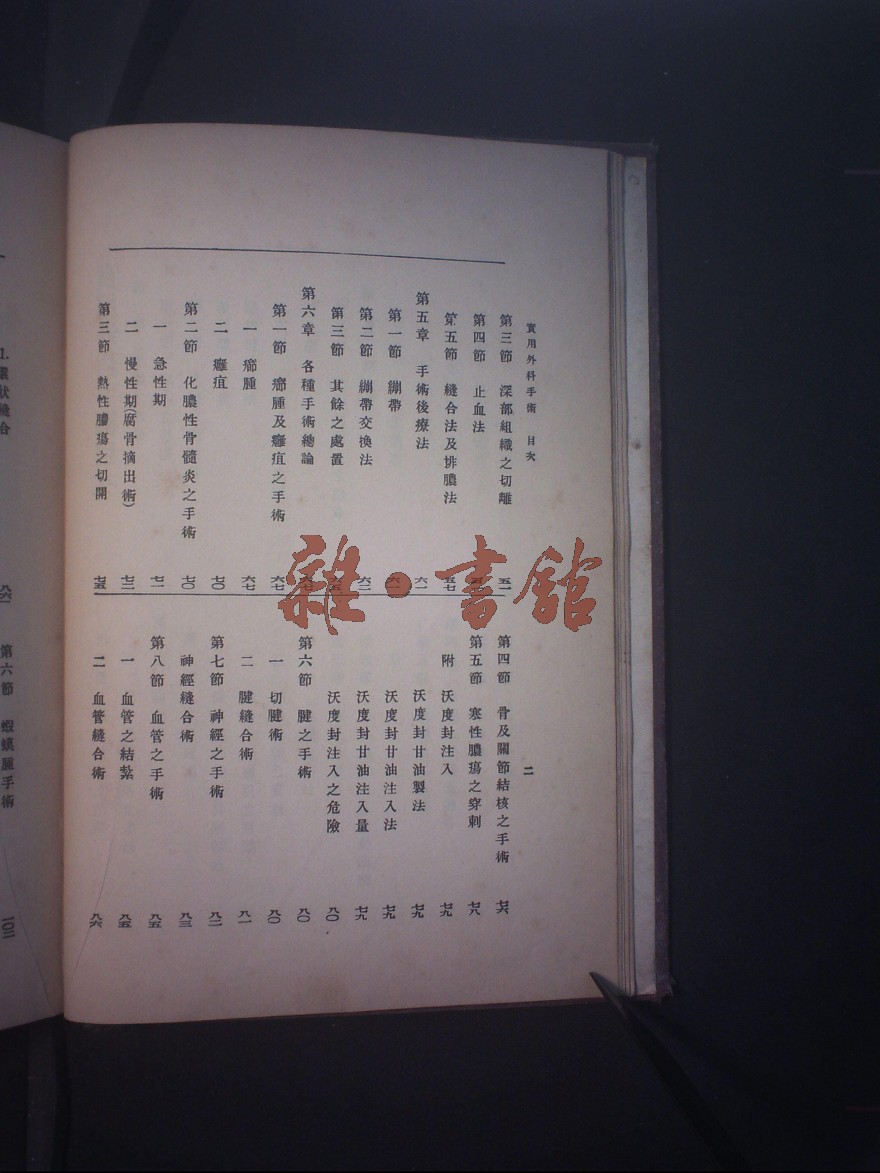 實用外科手術 目次
二
第三節 深部組織之切離 五一
第四節 止血法
第五節 縫合法及排膿法 五七
第五章 手術後療法 六一
第一節 繃帶
第二節 繃帶交換法 六二
第三節 其餘之處置
第六章 各種手術總論
第一節 癤腫及癰疽之手術 六七
一 癤腫 六七
二 癰疽 七〇
第二節 化膿性骨髓炎之手術 七〇
一 急性期 七一
二 慢性期(腐骨摘出術) 七三
第三節 熱性膿瘍之切開 七五
第四節 骨及關節結核之手術 七六
第五節 寒性膿瘍之穿刺 七八
附 沃度封注入 七九
沃度封甘油製法 七九
沃度封甘油注入法 七九
沃度封甘油注入量 七九
沃度封注入之危險 八〇
第六節 腱之手術 八〇
一 切腱術 八〇
二 腱縫合術 八一
第七節 神經之手術 八二
神經縫合術 八三
第八節 血管之手術 八五
一 血管之結紮 八五
二 血管縫合術 八六
狀縫合
第六節 蝦蟆腫手術 一〇二
雜·書館